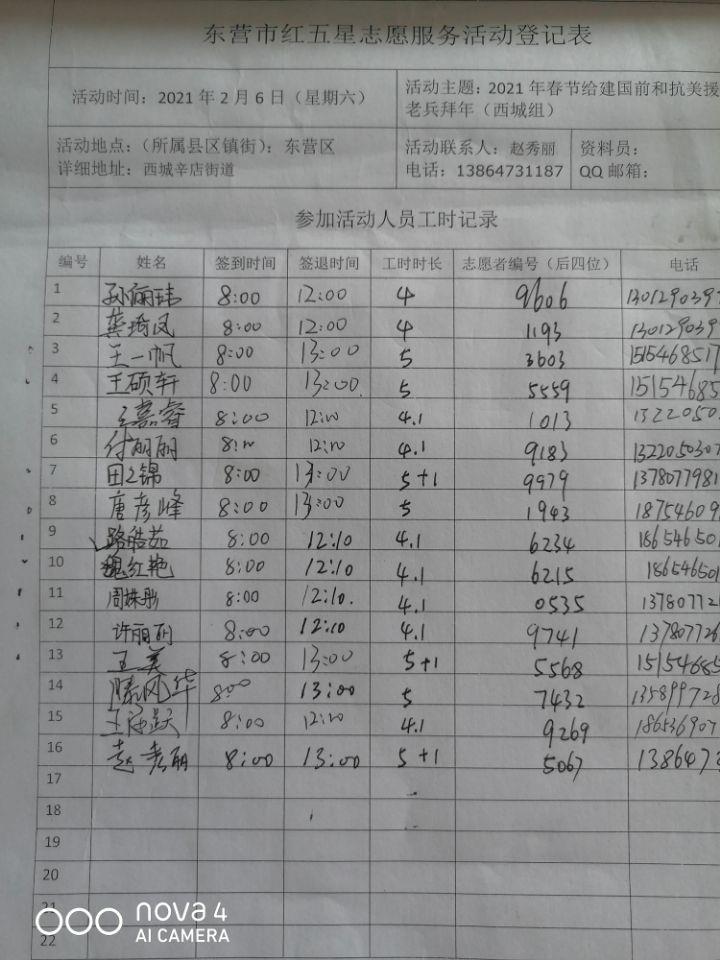 东营市红五星志愿服务活动登记表
活动时间：2021 年 2 月 6 日（星期六） 活动主题：2021 年春节给建国前和抗美援
老兵拜年（西城组）
活动地点：（所属县区镇街）：东营区 活动联系人：赵秀丽 资料员：
详细地址：西城辛店街道 电话：13864731187 QQ 邮箱：
参加活动人员工时记录
编号 姓名 签到时间 签退时间 工时时长 志愿者编号（后四位） 电话
1 孙俪玮 8:00 12:00 4 9606 1301290397
2 龚琦凤 8:00 12:00 4 1193 130129039
3 王一帆 8:00 13:00 5 3603 1515468517
4 王硕轩 8:00 13:00 5 5559 15154685
5 王嘉睿 8:00 12:10 4.1 1013 1322050
6 付丽丽 8:10 12:10 4.1 9183 1322050307
7 田之锦 8:00 13:00 5+1 9979 1378077981
8 唐彦峰 8:00 13:00 5 1943 18754609
9 路皓茹 8:00 12:10 4.1 6234 186546501
10 魏红艳 8:00 12:10 4.1 6215 186546501
11 周姝彤 8:00 12:10. 4.1 0535 137807721
12 许丽丽 8:00 12:10 4.1 9741 137807726
13 王美 8:00 13:00 5+1 5568 15154685
14 滕风华 8:00 13:00 5 7432 135899728
15 8:00 12:10 4.1 9269 186536907
16 赵秀丽 8:00 13:00 5+1 5067 1386473
17
18
19
20
21
22
nova 4
AI CAMERA